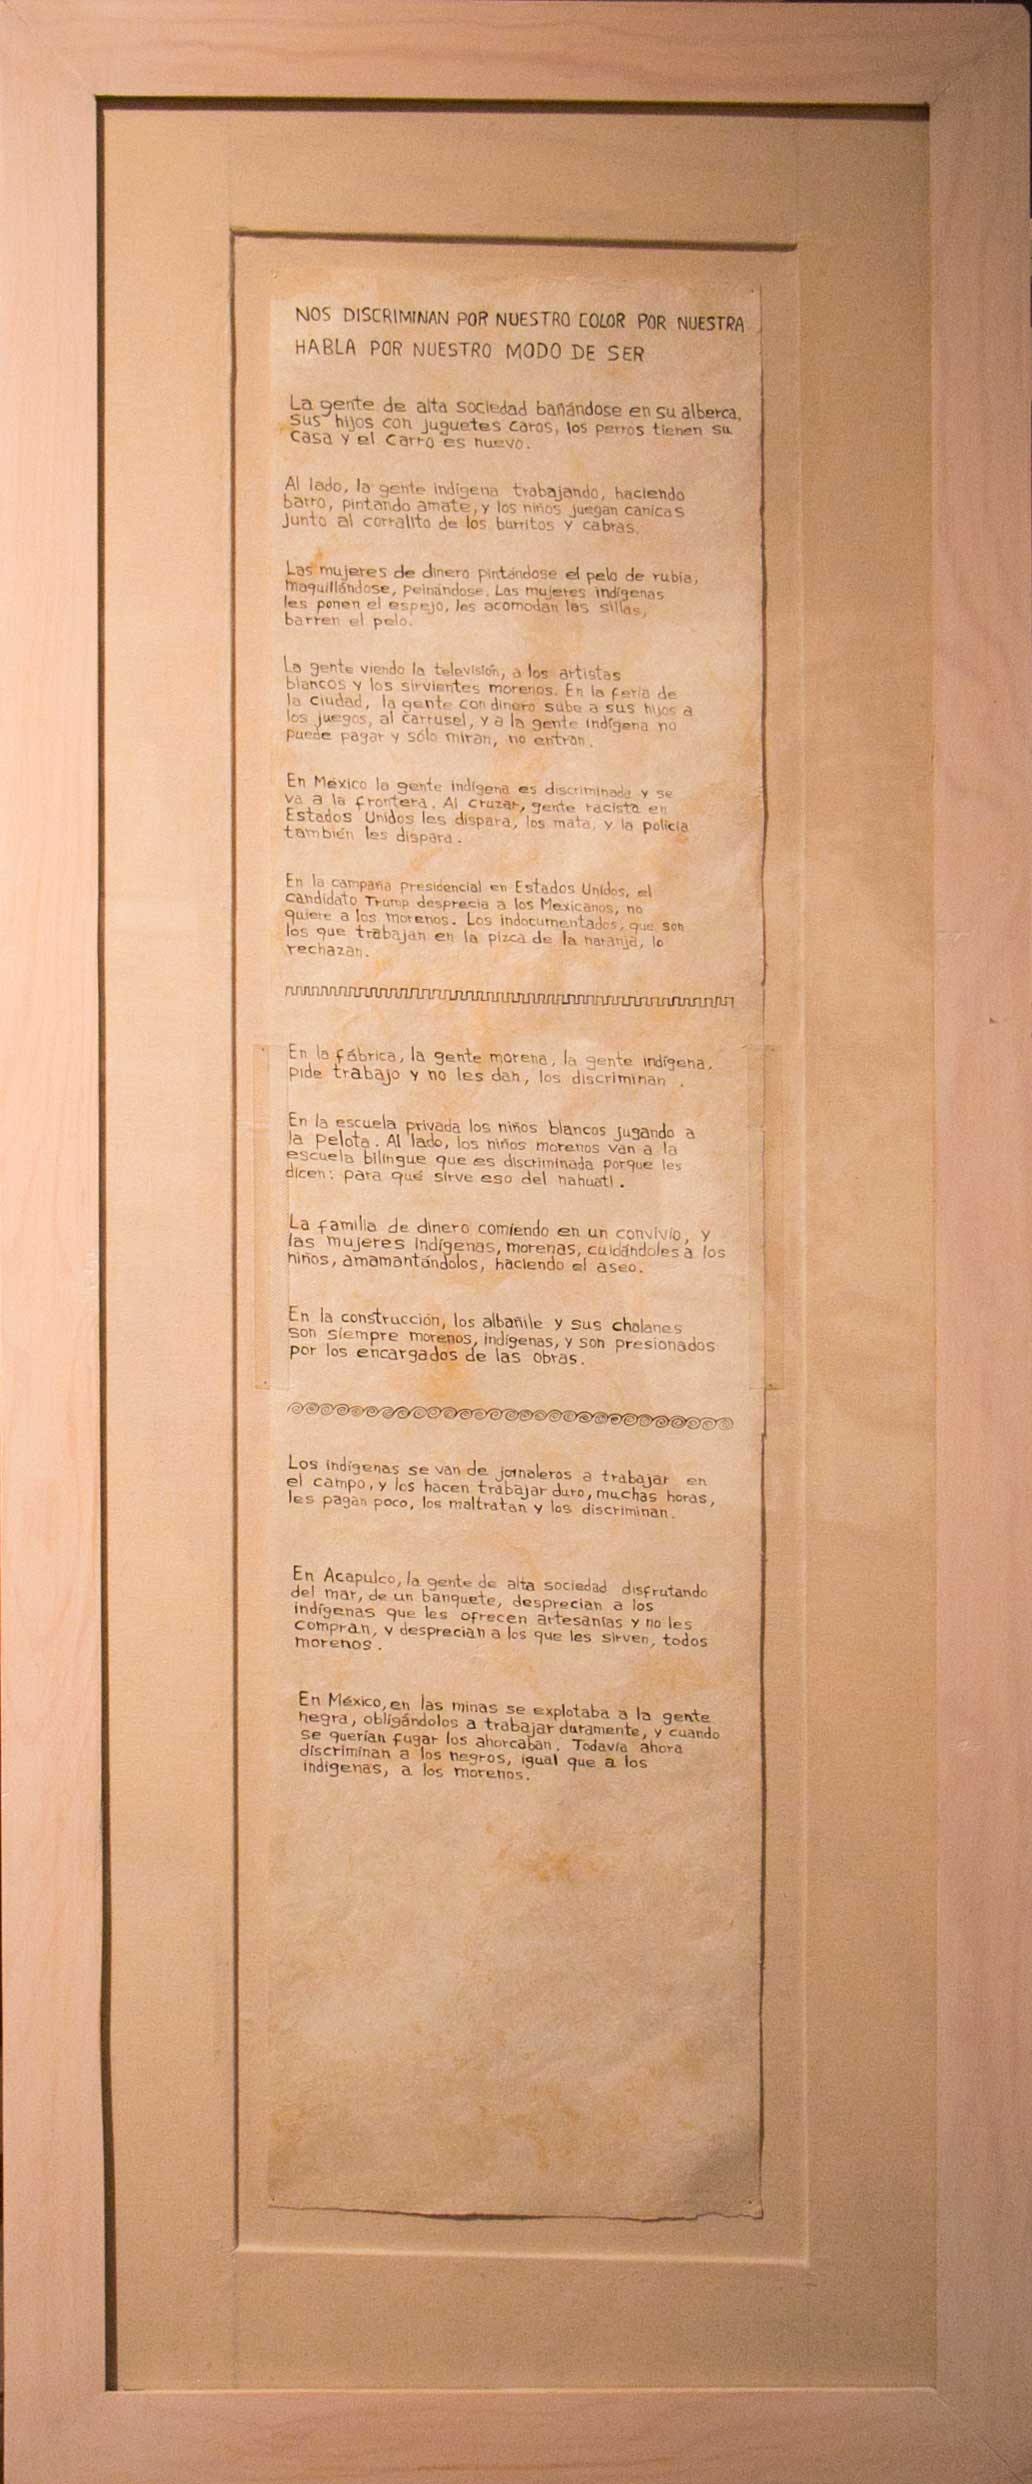 NOS DISCRIMINAN POR NUESTRO COLOR POR NUESTRA
HABLA POR NUESTRO MODO DE SER
La gente de alta sociedad bañándose en su alberca,
sus hijos con juguetes caros, los perros tienen su
casa y el carro es nuevo.
Al lado, la gente indígena trabajando, haciendo
barro, pintando amate, y los niños juegan canicas
junto al corralito de los burritos y cabras.
Las mujeres de dinero pintándose el pelo de rubia,
maquillándose, peinándose. Las mujeres indígenas
les ponen el espejo, les acomodan las sillas,
barren el pelo.
La gente viendo la televisión, a los artistas
blancos y los sirvientes morenos. En la feria de
la ciudad, la gente con dinero sube a sus hijos a
los juegos, al carrusel, y a la gente indígena no
puede pagar y sólo miran, no entran.
En México la gente indígena es discriminada y se
va a la frontera. Al cruzar, gente racista en
Estados Unidos les dispara, los mata, y la policía
también les dispara.
En la campaña presidencial en Estados Unidos, el
candidato Trump desprecia a los Mexicanos, no
quiere a los morenos. Los indocumentados, que son
los que trabajan en la pizca de la naranja, lo
rechazan.
En la fábrica, la gente morena, la gente indígena,
pide trabajo y no les dan, los discriminan.
En la escuela privada los niños blancos jugando a
la pelota. Al lado, los niños morenos van a la
escuela bilingue que es discriminada porque les
dicen: para qué sirve eso del nahuatl.
La familia de dinero comiendo en un convivio, y
las mujeres indígenas, morenas, cuidándoles a los
niños, amamantándolos, haciendo el aseo.
En la construcción, los albañile y sus chalanes
son siempre morenos, indígenas, y son presionados
por los encargados de las obras.
Los indígenas se van de jornaleros a trabajar en
el campo, y los hacen trabajar duro, muchas horas,
les pagan poco, los maltratan y los discriminan.
En Acapulco, la gente de alta sociedad disfrutando
del mar, de un banquete, desprecian a los
indígenas que les ofrecen artesanías y no les
compran, y desprecian a los que les sirven, todos
morenos.
En México, en las minas se explotaba a la gente
negra, obligándolos a trabajar duramente, y cuando
se querían fugar los ahorcaban. Todavía ahora
discriminan a los negros, igual que a los
indígenas, a los morenos.